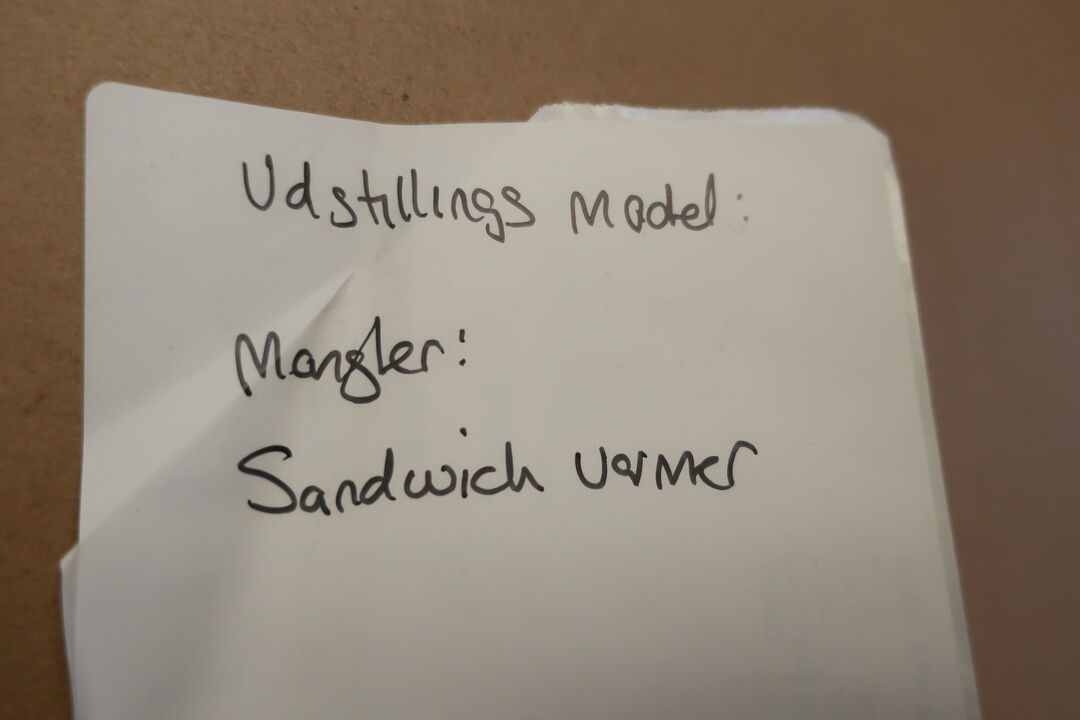 Udstillings Model:
Mangler:
Sandwich varmer